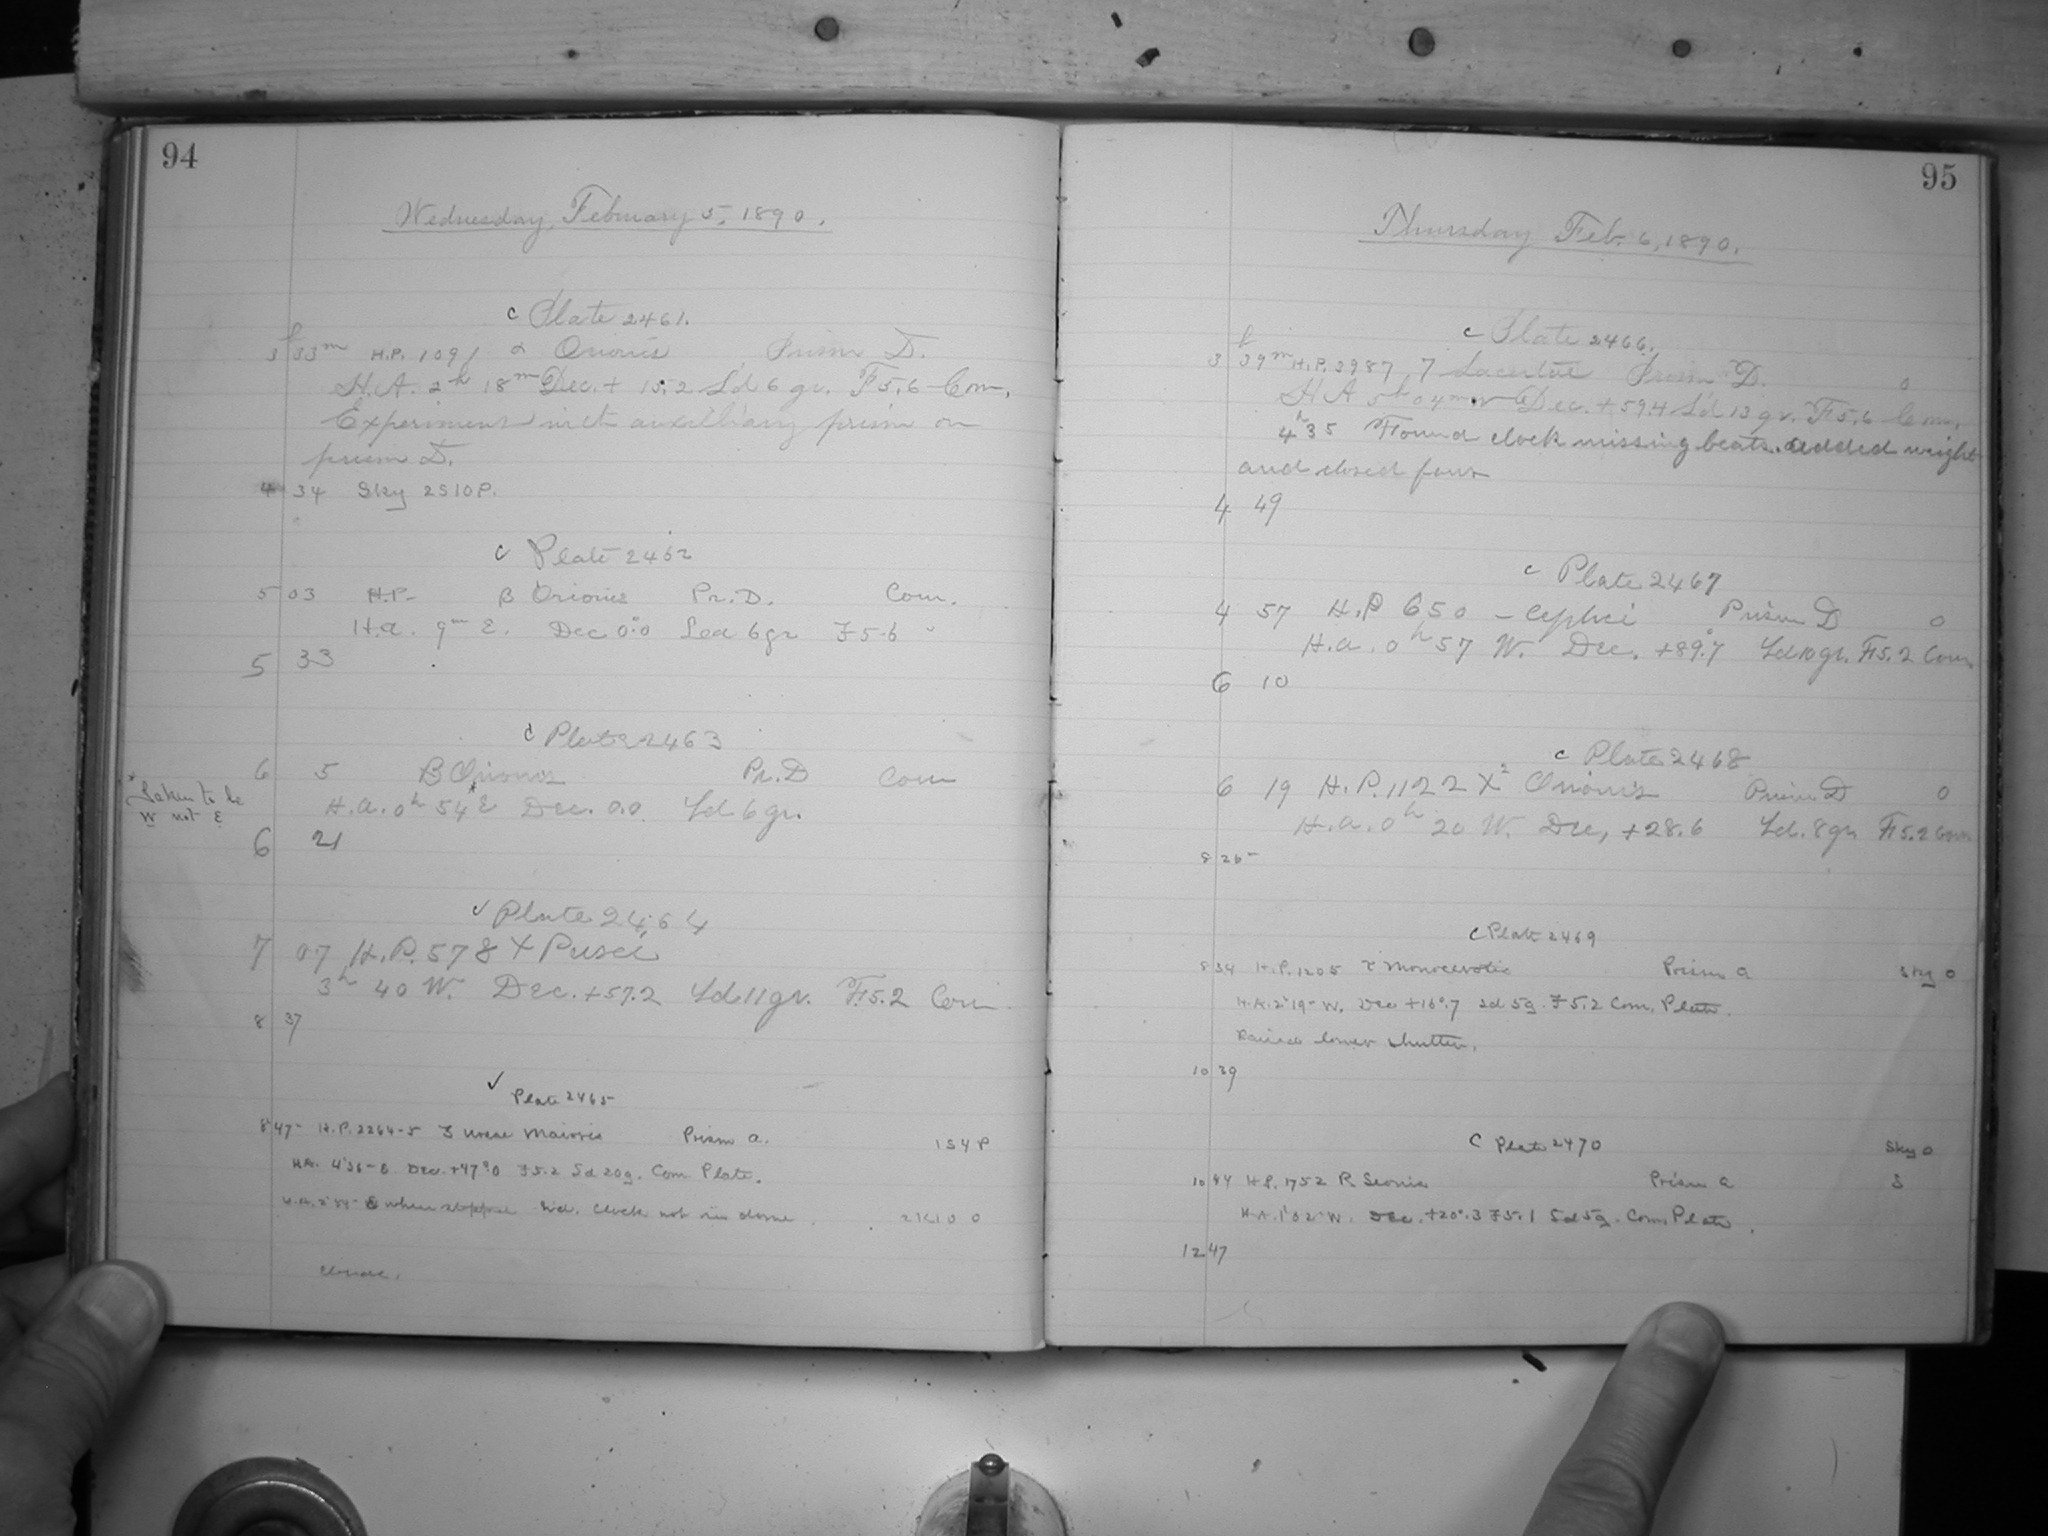 94
Wednesday, February 5, 1890.
c Plate 2461.
3h 33m H.P. 1091 α Orionis Prism D.
H.A. 2h 18m Dec. + 15.2 S'd 6 gr. F 5.6 Com.
Experiment with auxilliary prism on
prism D.
4 34 Sky 2S10P.
c Plate 2462
5 03 H.P. β Orionis Pr. D. Com.
H.a. 9m E. Dec 0°.0 Sed 6gr F 5.6
5 33
c Plate 2463
6 5 β Orionis Pr. D Com
H.a. 0h 54 *E Dec. 0.0 Sd 6 gr.
* Taken to be
W not E
6 21
✓ Plate 2464
7 07 H.P. 578 χ Persei
3h 40 W. Dec. +57.2 Sd. 11 gr. F5.2 Com
8 37
✓ Plate 2465
8 47 H.P. 2264-5 ζ Ursae Maioris Prism a. 1S4P
H.A. 4h36m E Dec. +47°.0 F5.2 Sd 20g. Com. Plate.
H.A. 2h 54m E when stopped Sid. Clock not in dome. 21610 0
95
Thursday Feb. 6, 1890.
c Plate 2466.
3h 39m H.P. 3987, 7 Lacertae Prism D. 0
H A 5h 04m W Dec. +59.4 S'd 13 gr. F 5.6 Com.
4h 35 Found clock missing beats. added weight
and closed four
4 49
c Plate 2467
4 57 H.P 650 - Cephei Prism D 0
H.a. 0h 57 W. Dec. +89°.7 Sd 10gr. F5.2 Com
6 10
c Plate 2468
6 19 H.P. 1122 χ2 Orionis Prism D 0
H.a. 0h 20 W. Dec, +28.6 Sd. 8gr F 5.2 Com
8 26
c Plate 2469
8 34 H.P. 1205 Monocerotis Prism a Sky 0
H.A. 2h 19m W. Dec +16°.7 Sd 5g F 5.2 Com. Plate.
Raised lower shutter.
10 39
C Plate 2470 Sky 0
10 44 H.P. 1752 R Leonis Prism a S
H.A. 1h 02m W. Dec. +20°.3 F5.1 Sd 5g. Com. Plate.
12 47